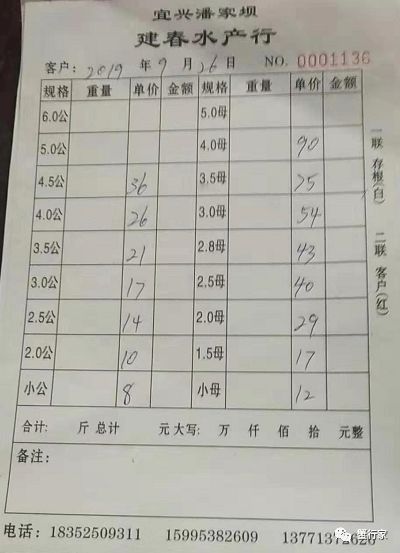 宜兴潘家坝
建春水产行
客户: 2019 年 9 月 26 日 NO. 0001136
规格 重量 单价 金额 规格 重量 单价 金额
6.0公 5.0母
5.0公 4.0母 90
4.5公 36 3.5母 75
4.0公 26 3.0母 54
3.5公 21 2.8母 43
3.0公 17 2.5母 40
2.5公 14 2.0母 29
2.0公 10 1.5母 17
小公 8 小母 12
合计: 斤 总计 元 大写: 万 仟 佰 拾 元整
备注:
电话: 18352509311 15995382609 13771372626
一联 存根(白) 二联 客户(红)
蟹行家